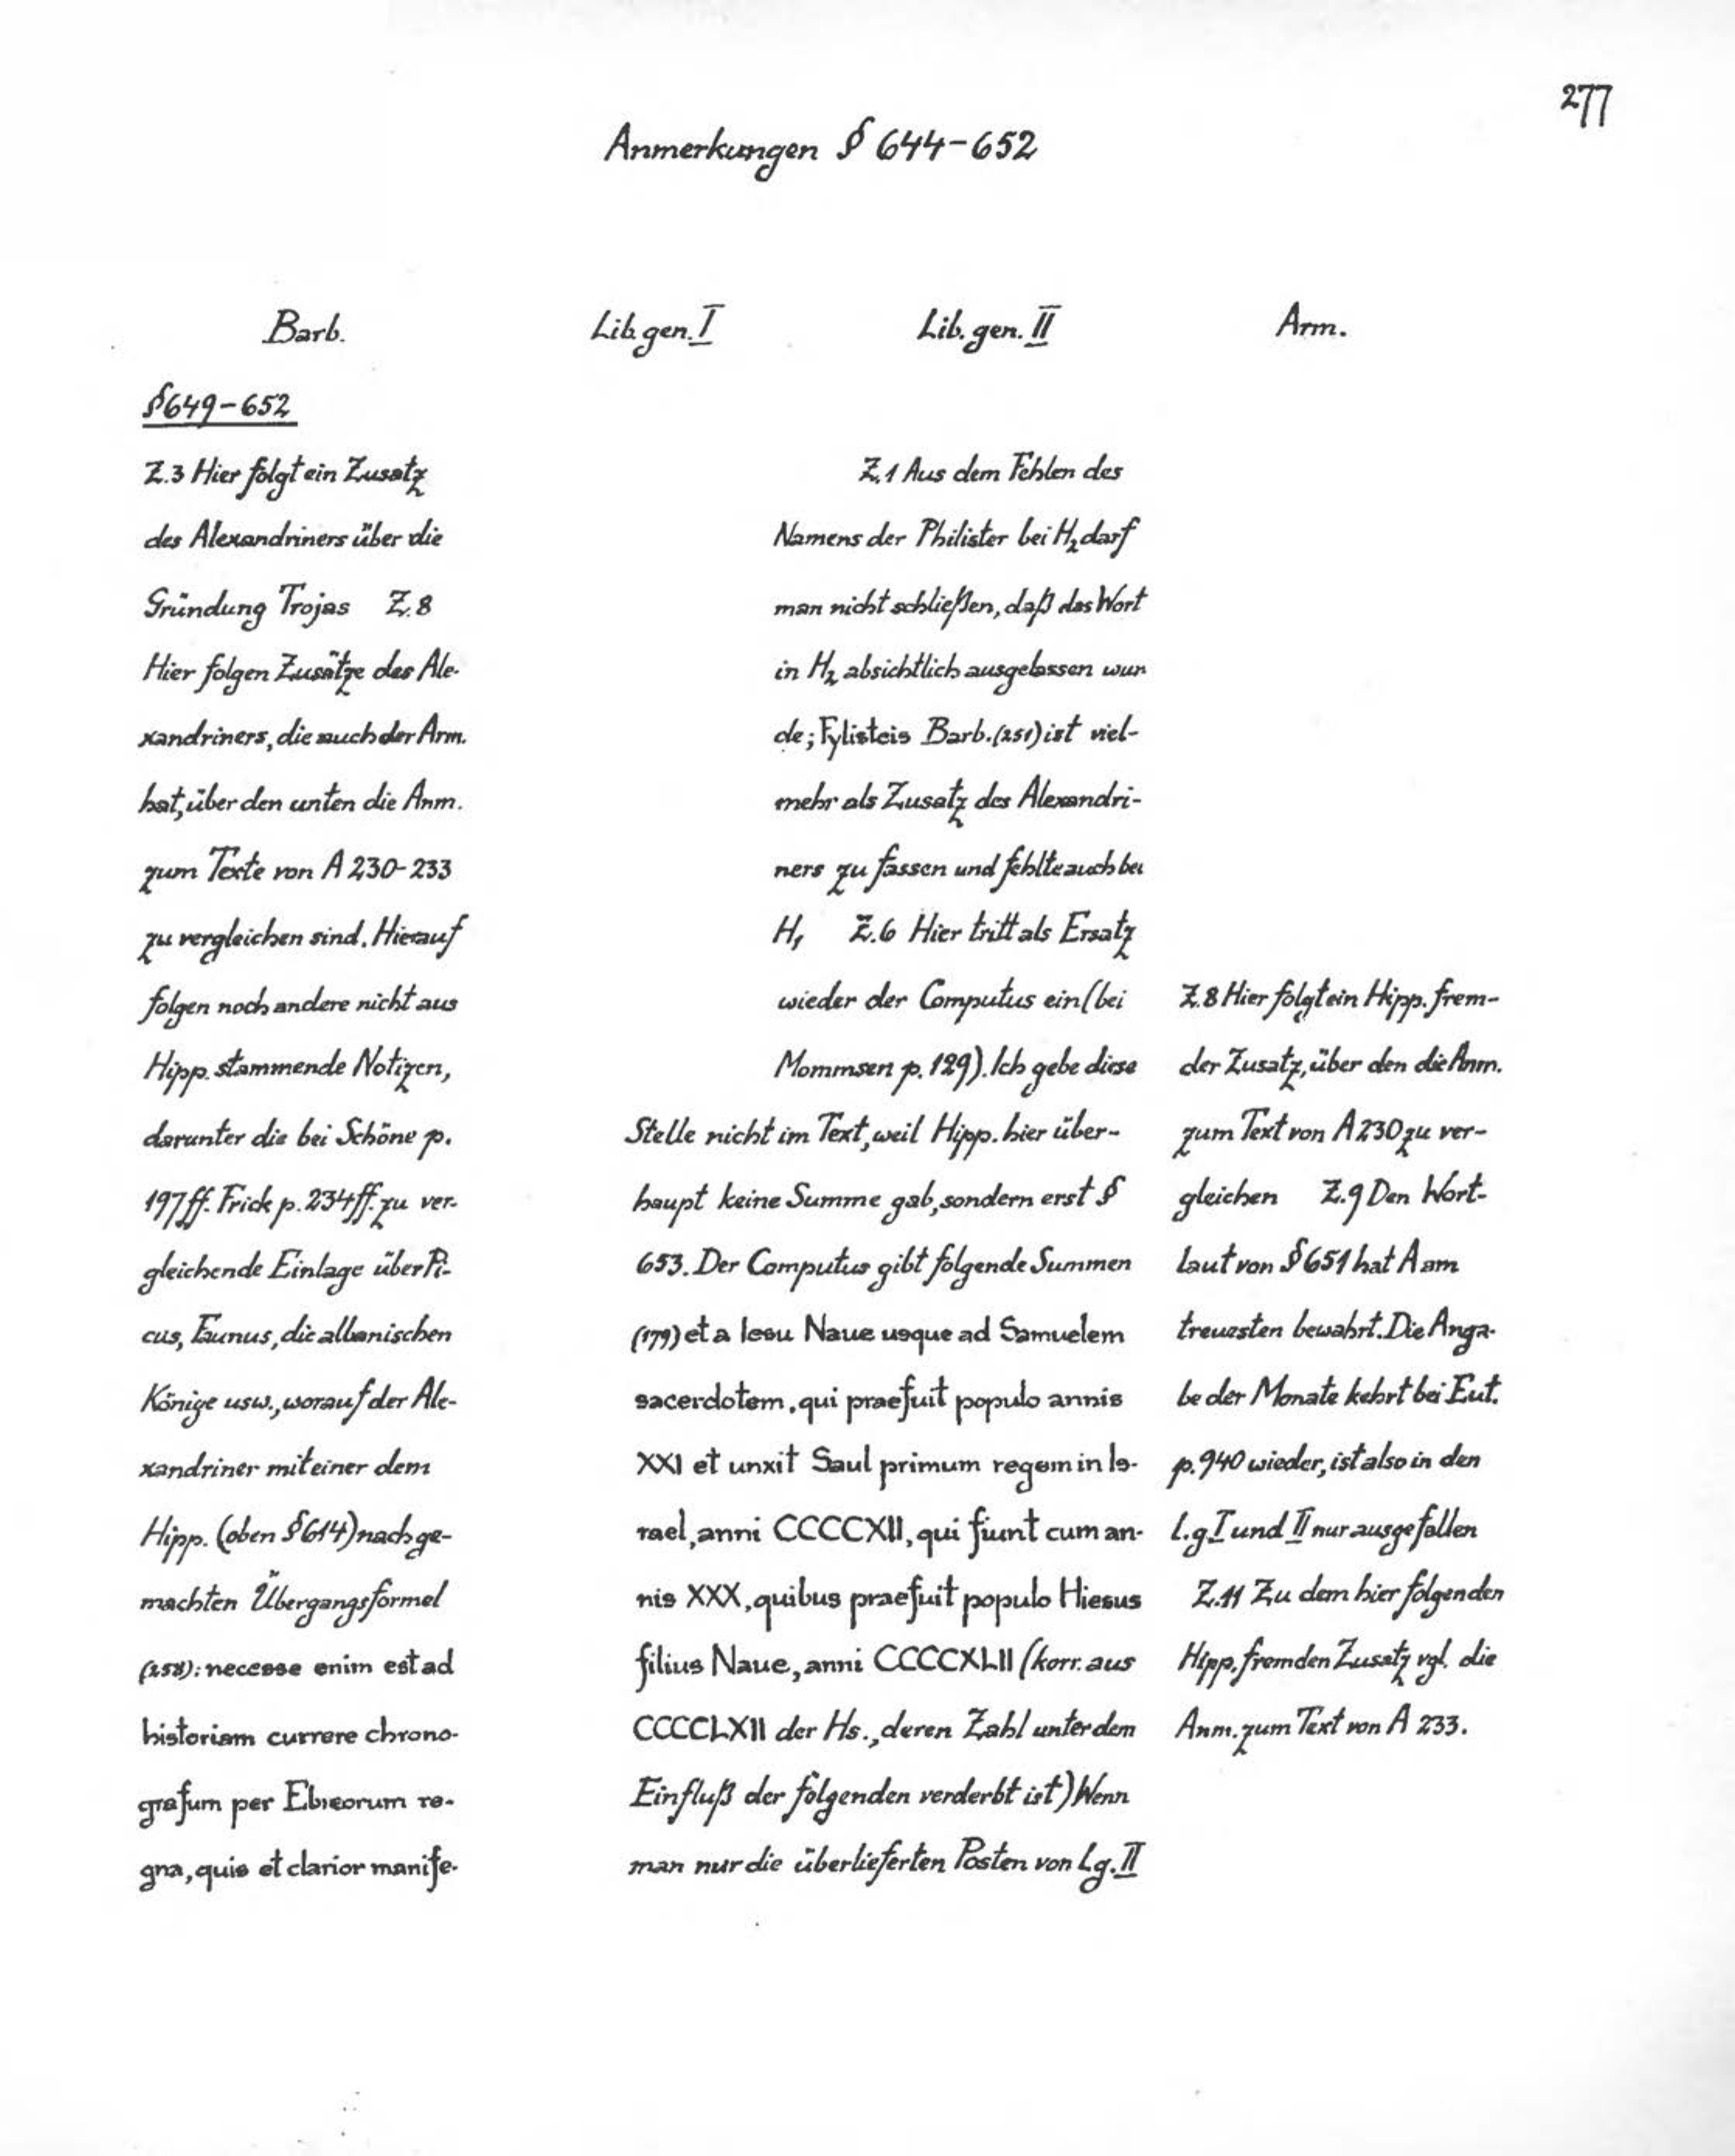 277
Anmerkungen § 644-652
Barb.
Lib. gen. I
Lib. gen. II
Arm.
§ 649-652
Z.3 Hier folgt ein Zusatz
des Alexandriners über die
Gründung Trojas Z.8
Hier folgen Zusätze des Ale-
xandriners, die auch der Arm.
hat, über den unten die Anm.
zum Texte von A 230-233
zu vergleichen sind. Hierauf
folgen noch andere nicht aus
Hipp. stammende Notizen,
darunter die bei Schöne p.
197ff. Frick p. 234ff. zu ver-
gleichende Einlage über Pi-
cus, Faunus, die albanischen
Könige usw., worauf der Ale-
xandriner mit einer dem
Hipp. (oben § 614) nachge-
machten Übergangsformel
(258): necesse enim est ad
historiam currere chrono-
grafum per Ebreorum re-
gna, quis et clarior manife-
Z.1 Aus dem Fehlen des
Namens der Philister bei H2 darf
man nicht schließen, daß das Wort
in H2 absichtlich ausgelassen wur
de; Fylisteis Barb. (251) ist viel-
mehr als Zusatz des Alexandri-
ners zu fassen und fehlte auch bei
H1 Z.6 Hier tritt als Ersatz
wieder der Computus ein (bei
Mommsen p. 129). Ich gebe diese
Stelle nicht im Text, weil Hipp. hier über-
haupt keine Summe gab, sondern erst §
653. Der Computus gibt folgende Summen
(179) et a Iesu Naue usque ad Samuelem
sacerdotem, qui praefuit populo annis
XXI et unxit Saul primum regem in Is-
rael, anni CCCCXII, qui fiunt cum an-
nis XXX, quibus praefuit populo Hiesus
filius Naue, anni CCCCXLII (korr. aus
CCCCLXII der Hs., deren Zahl unter dem
Einfluß der folgenden verderbt ist) Wenn
man nur die überlieferten Posten von L.g. II
Z.8 Hier folgt ein Hipp. frem-
der Zusatz, über den die Anm.
zum Text von A 230 zu ver-
gleichen Z.9 Den Wort-
laut von § 651 hat A am
treuesten bewahrt. Die Anga-
be der Monate kehrt bei Eut.
p. 940 wieder, ist also in den
l.g. I und II nur ausgefallen
Z.11 Zu dem hier folgenden
Hipp. fremden Zusatz vgl. die
Anm. zum Text von A 233.